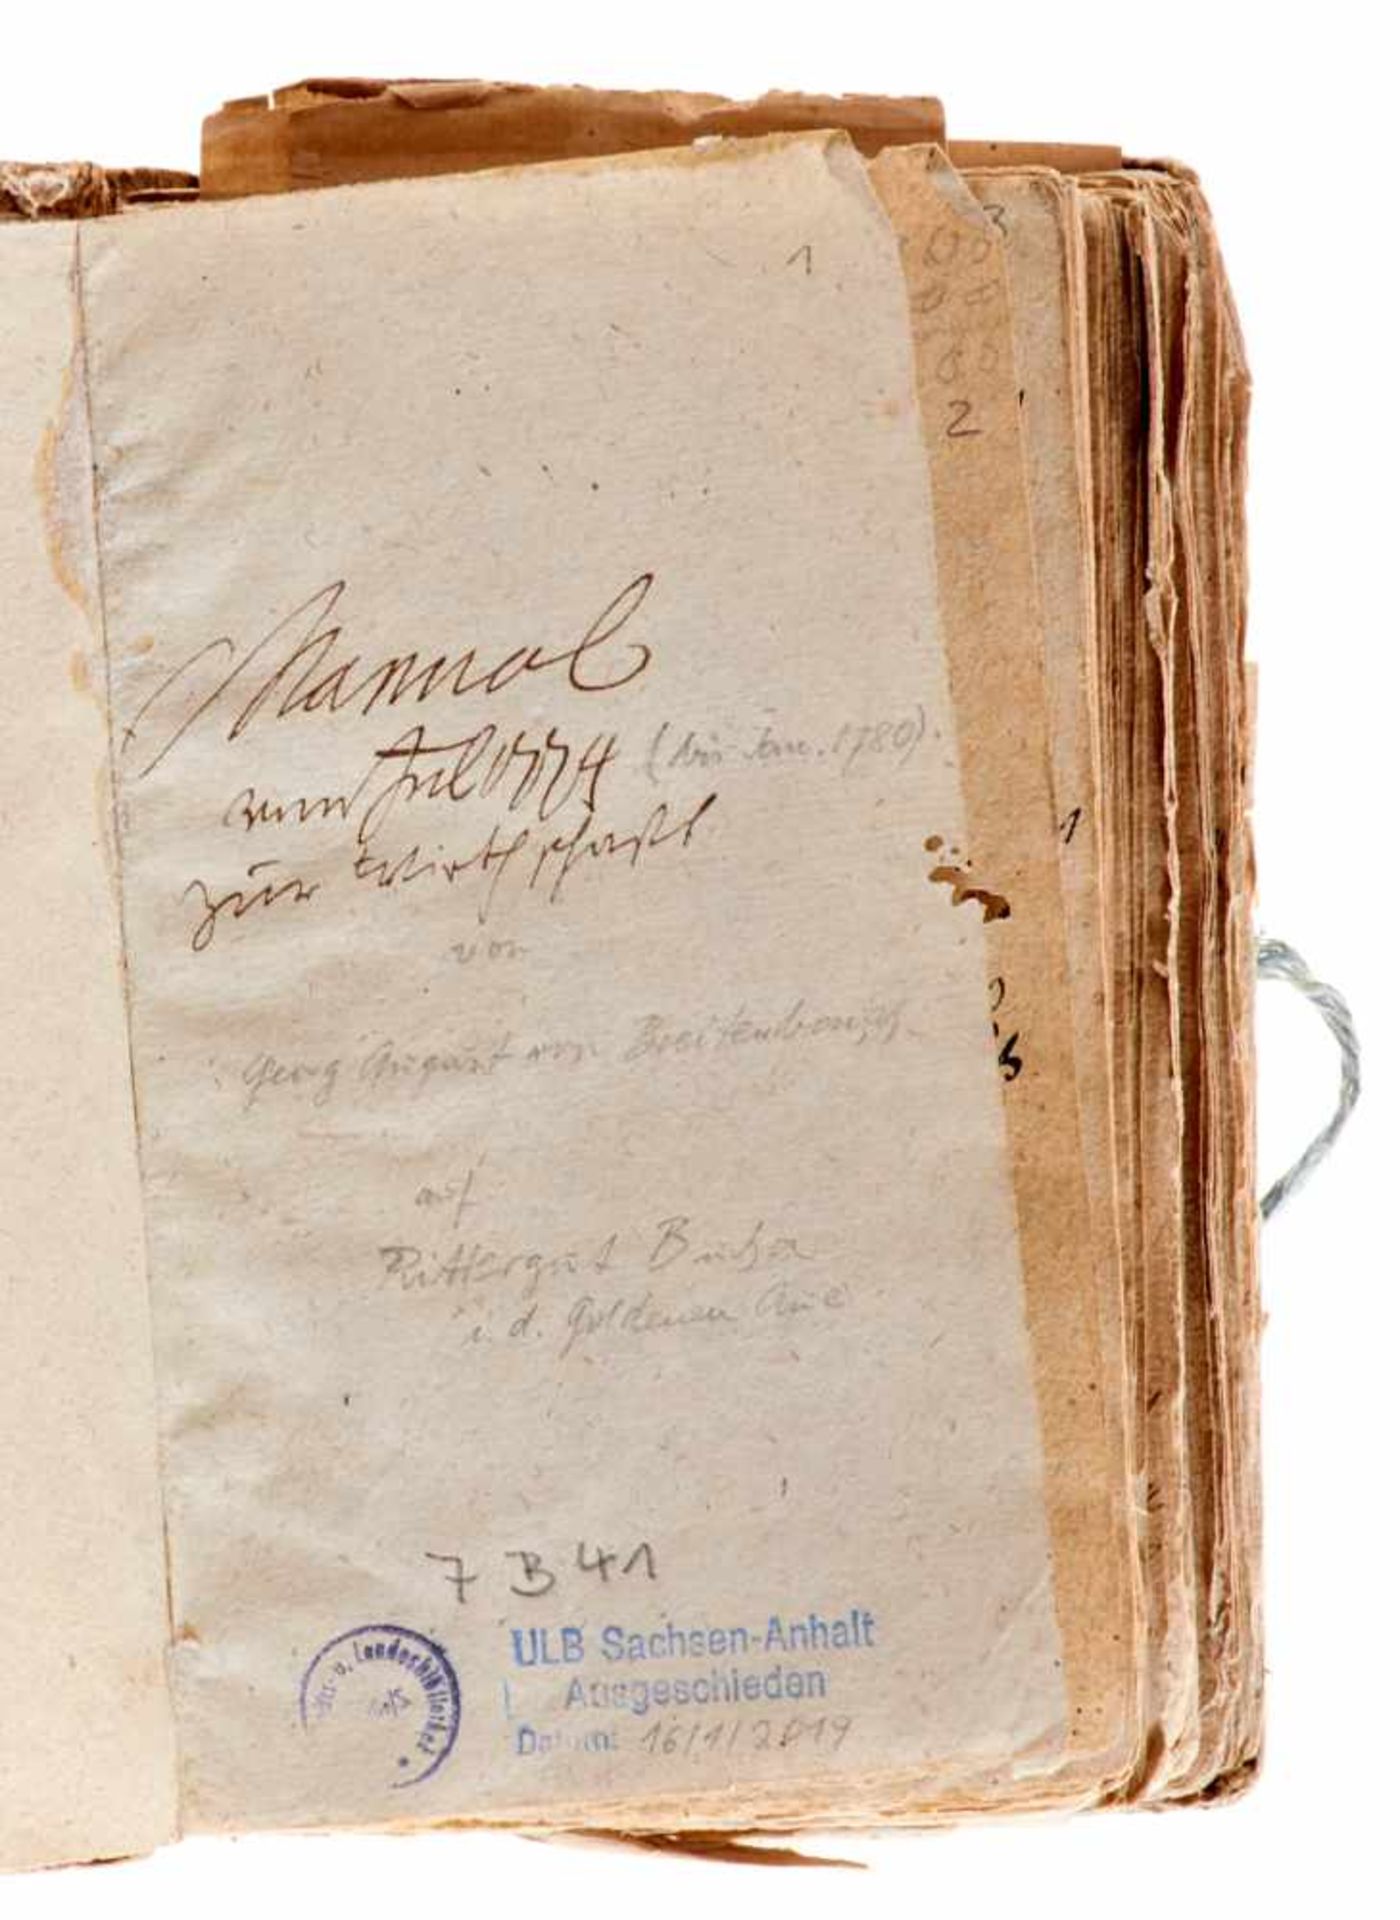 1
3
2
Manual
vom Jul 1774 (bis Jan. 1780).
zur Wirthschafft
1
von
Georg August von Breitenbauch
auf
Rittergut Bucha
i. d. Goldenen Aue
7 B 41
ULB Sachsen-Anhalt
Ausgeschieden
Datum: 16/1/2019
u. Landesbibliothek